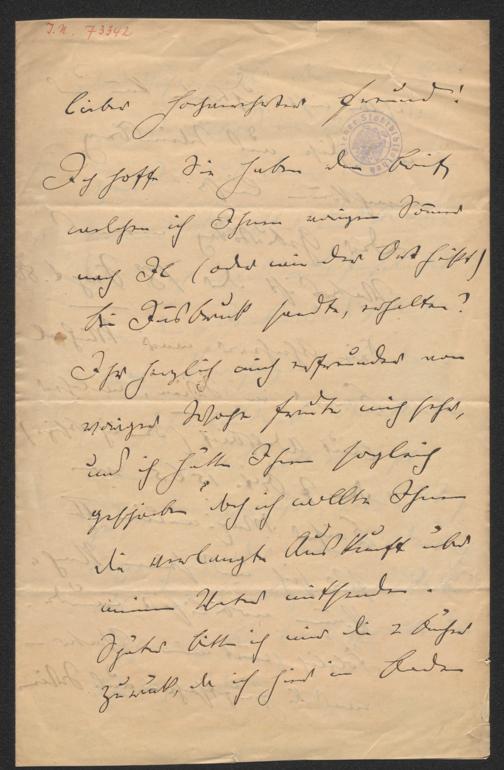 J.N. 73342
lieber hochverehrter Freund!
Ich hoffe Sie haben den Brief
welchen ich Ihnen vorigen Sommer
nach Igls (oder wie der Ort heißt)
bei Innsbruck sandte, erhalten?
Ihr herzlich mich erfreuendes von
voriger Woche freute mich sehr,
und ich hätte Ihnen sogleich
geschrieben doch ich wollte Ihnen
die verlangte Auskunft über
meinen Vater mitsenden.
Später bitte ich mir die 2 Bücher
zurück, da ich hier in Baden